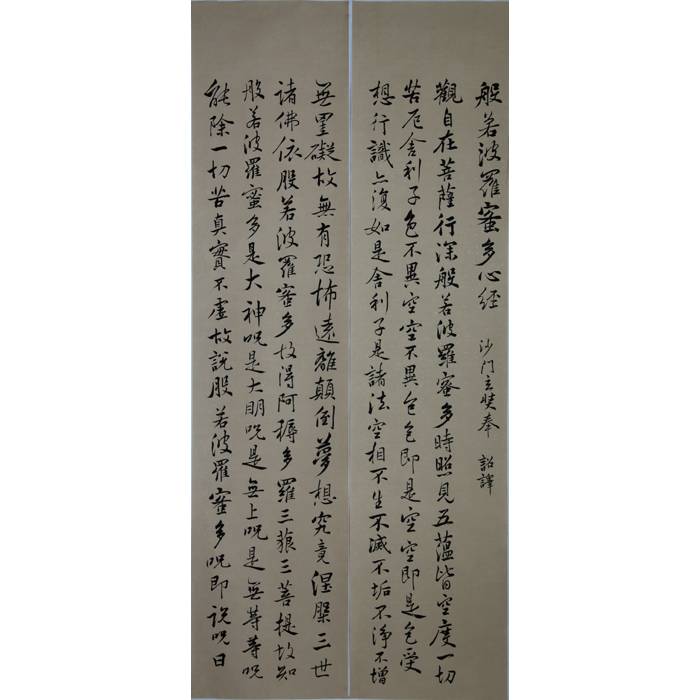 般若波羅蜜多心經 沙門玄奘奉 詔譯
觀自在菩薩行深般若波羅蜜多時照見五蘊皆空度一切
苦厄舍利子色不異空空不異色色即是空空即是色受
想行識亦復如是舍利子是諸法空相不生不滅不垢不淨不增
無罣礙故無有恐怖遠離顛倒夢想究竟涅槃三世
諸佛依般若波羅蜜多故得阿耨多羅三藐三菩提故知
般若波羅蜜多是大神呪是大明呪是無上呪是無等等呪
能除一切苦真實不虛故說般若波羅蜜多呪即說呪曰